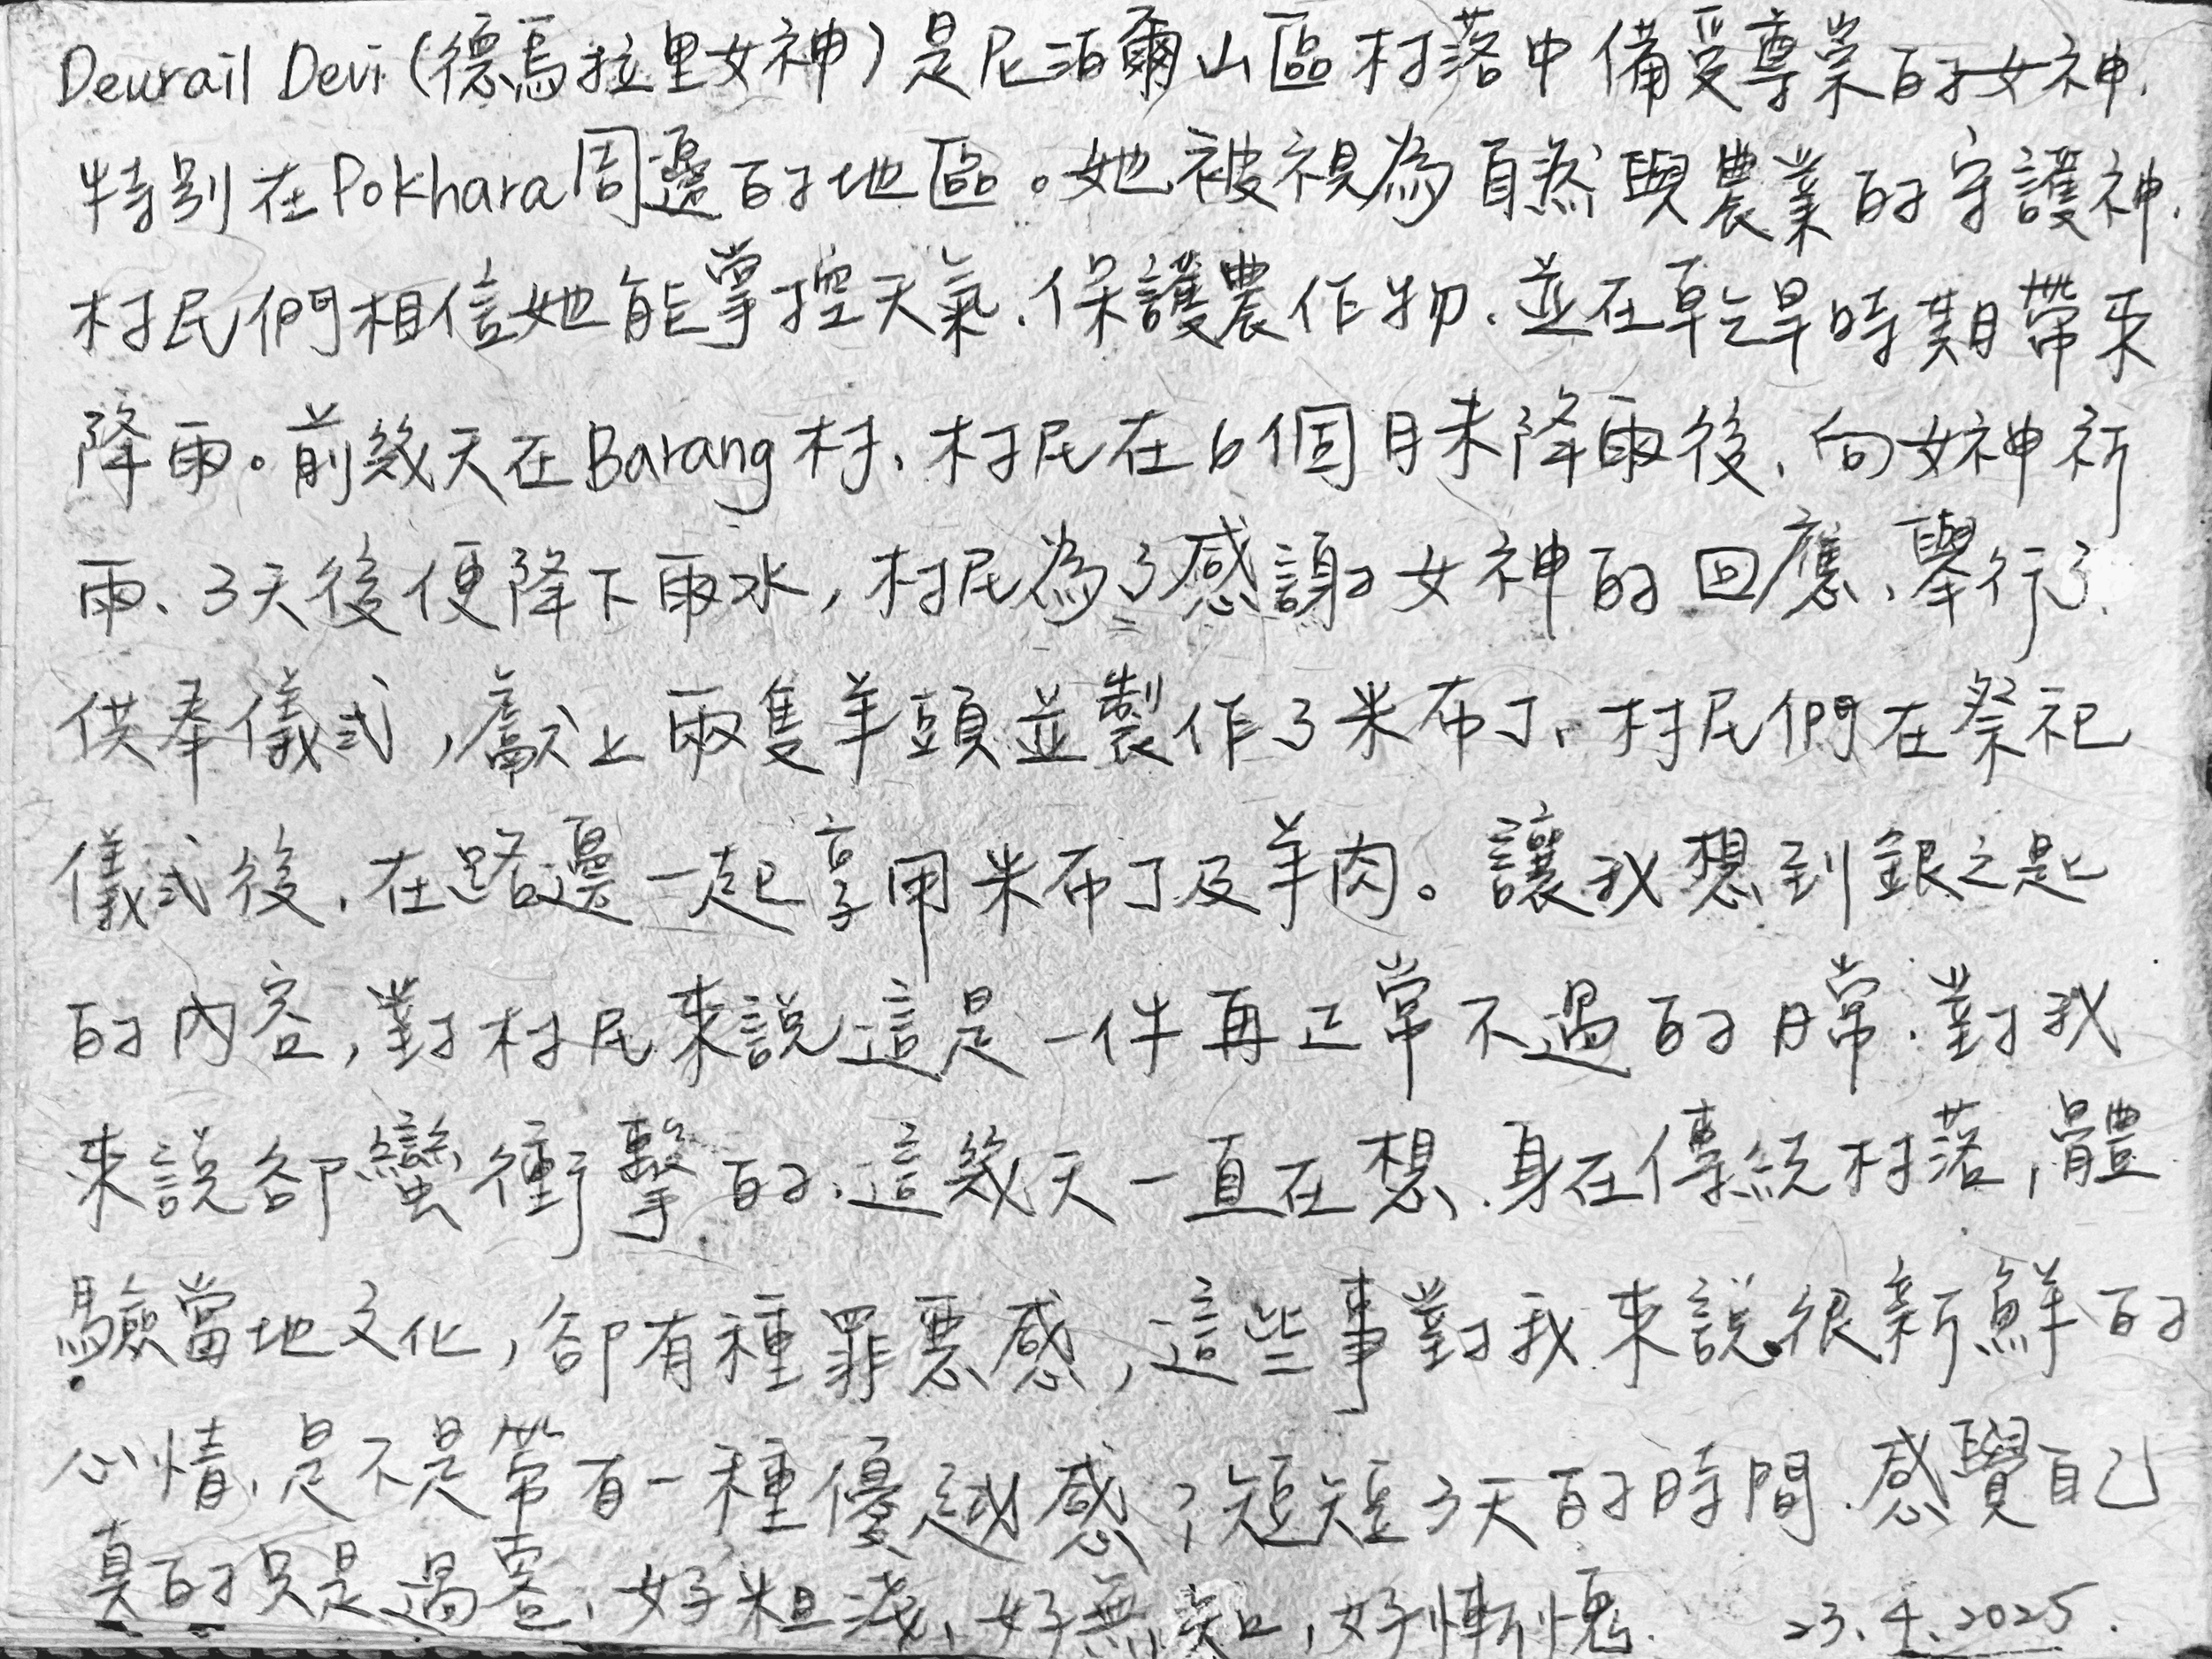 Deurail Devi (德焉拉里女神) 是尼泊爾山區村落中備受尊崇的女神.
特別在Pokhara周邊的地區。她被視為自然與農業的守護神.
村民們相信她能掌控天氣.保護農作物.並在乾旱時期帶來
降雨。前幾天在Barang村、村民在6個月未降雨後、向女神祈
雨、3天後便降下雨水,村民為了感謝女神的回應、舉行了
供奉儀式,獻上兩隻羊頭並製作了米布丁、村民們在祭祀
儀式後.在路邊一起享用米布丁及羊肉。讓我想到銀之匙
的內容,對村民來說這是一件再正常不過的日常.對我
來說卻蠻衝擊的.這幾天一直在想.身在傳統村落,體
驗當地文化,卻有種罪惡感,這些事對我來說很新鮮的
心情、是不是帶有一種優越感?短短3天的時間.感覺自己
真的只是過客、好粗淺、好無知,好慚愧. 23.4.2025.